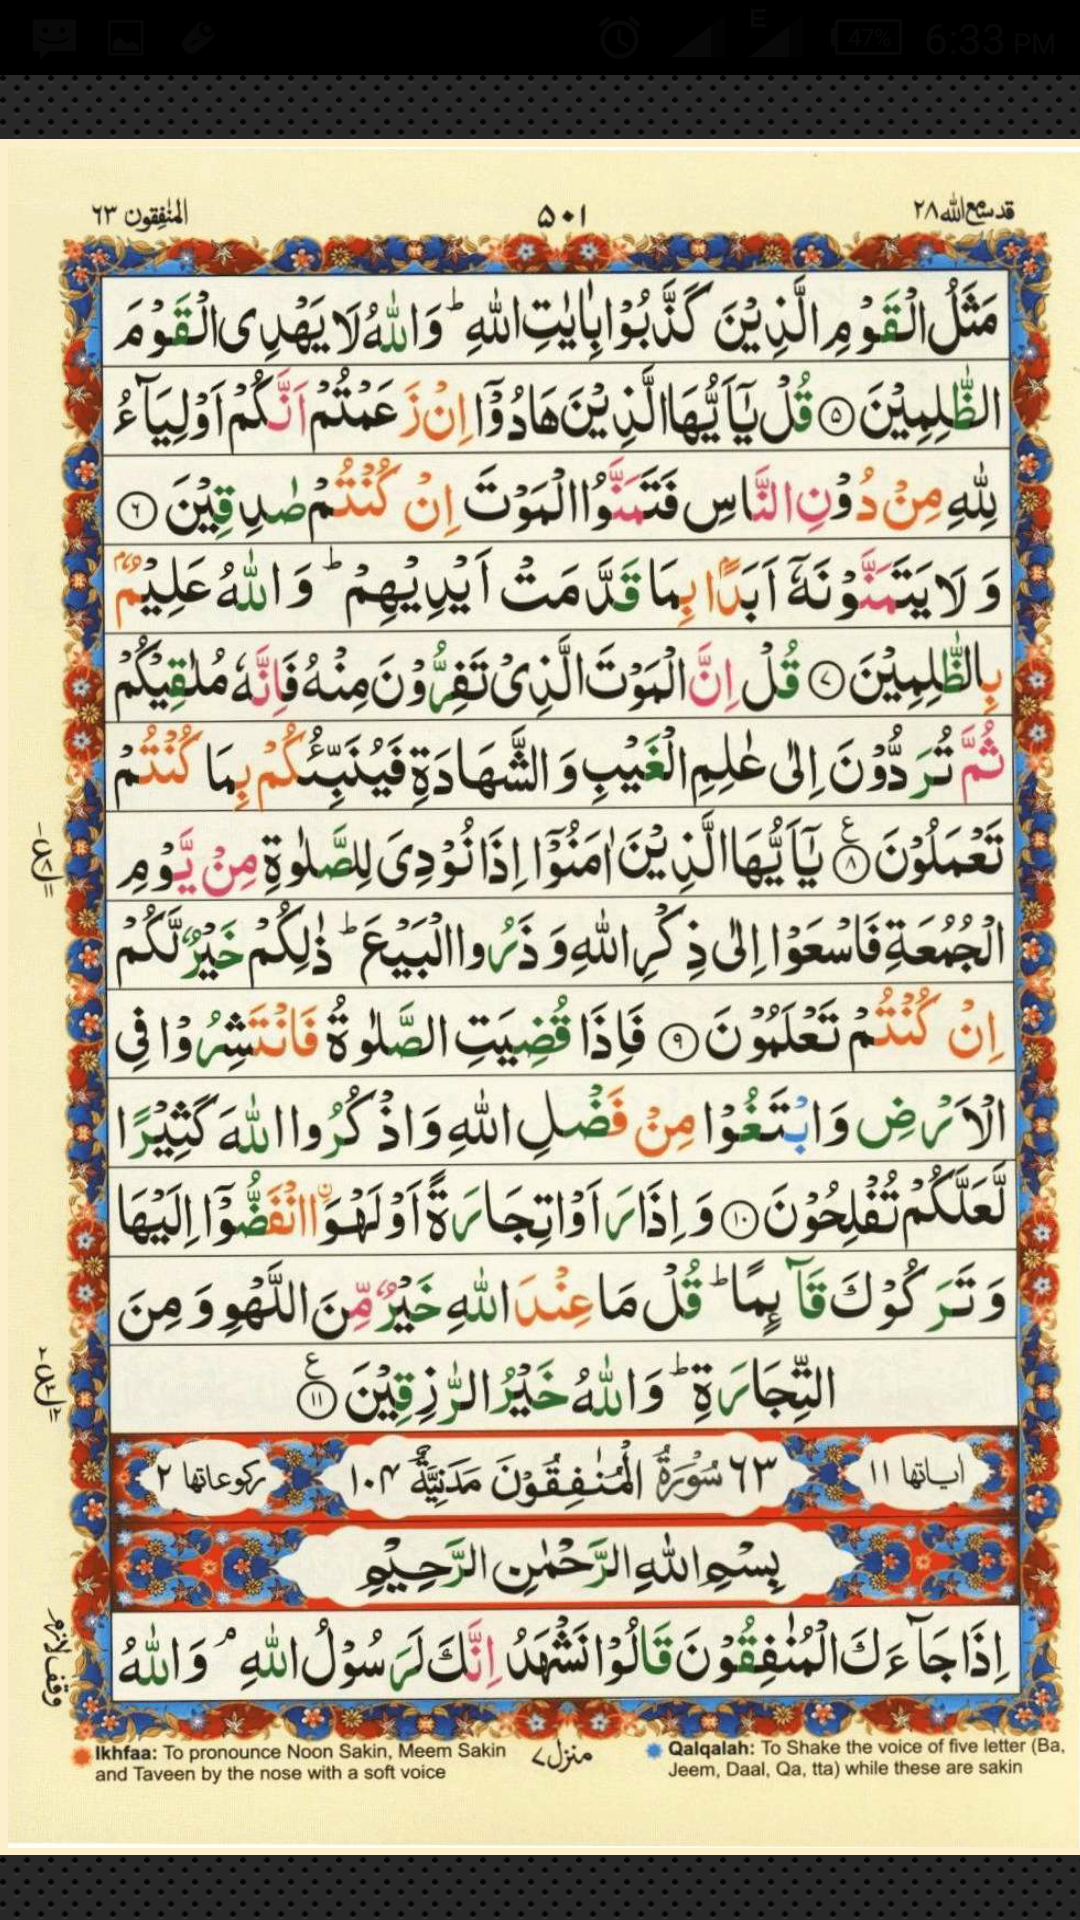 47% 6:33 PM
E
المنٰفقون ٦٣ ٥٠١ قد سمع الله ٢٨
مَثَلُ الْقَوْمِ الَّذِيْنَ كَذَّبُوْا بِاٰيٰتِ اللّٰهِ ؕ وَاللّٰهُ لَا يَهْدِى الْقَوْمَ
الظّٰلِمِيْنَ ٥ قُلْ يٰۤاَيُّهَا الَّذِيْنَ هَادُوْۤا اِنْ زَعَمْتُمْ اَنَّكُمْ اَوْلِيَآءُ
لِلّٰهِ مِنْ دُوْنِ النَّاسِ فَتَمَنَّوُا الْمَوْتَ اِنْ كُنْتُمْ صٰدِقِيْنَ ٦
وَلَا يَتَمَنَّوْنَهٗۤ اَبَدًۢا بِمَا قَدَّمَتْ اَيْدِيْهِمْ ؕ وَاللّٰهُ عَلِيْمٌۢ
بِالظّٰلِمِيْنَ ٧ قُلْ اِنَّ الْمَوْتَ الَّذِىْ تَفِرُّوْنَ مِنْهُ فَاِنَّهٗ مُلٰقِيْكُمْ
ثُمَّ تُرَدُّوْنَ اِلٰى عٰلِمِ الْغَيْبِ وَالشَّهَادَةِ فَيُنَبِّئُكُمْ بِمَا كُنْتُمْ
تَعْمَلُوْنَ ٨ ع يٰۤاَيُّهَا الَّذِيْنَ اٰمَنُوْۤا اِذَا نُوْدِىَ لِلصَّلٰوةِ مِنْ يَّوْمِ
الْجُمُعَةِ فَاسْعَوْا اِلٰى ذِكْرِ اللّٰهِ وَذَرُوا الْبَيْعَ ؕ ذٰلِكُمْ خَيْرٌ لَّكُمْ
اِنْ كُنْتُمْ تَعْلَمُوْنَ ٩ فَاِذَا قُضِيَتِ الصَّلٰوةُ فَانْتَشِرُوْا فِى
الْاَرْضِ وَابْتَغُوْا مِنْ فَضْلِ اللّٰهِ وَاذْكُرُوا اللّٰهَ كَثِيْرًا
لَّعَلَّكُمْ تُفْلِحُوْنَ ١٠ وَاِذَا رَاَوْا تِجَارَةً اَوْ لَهْوَا ۨانْفَضُّوْۤا اِلَيْهَا
وَتَرَكُوْكَ قَآئِمًا ؕ قُلْ مَا عِنْدَ اللّٰهِ خَيْرٌ مِّنَ اللَّهْوِ وَمِنَ
التِّجَارَةِ ؕ وَاللّٰهُ خَيْرُ الرّٰزِقِيْنَ ١١ ع
اٰياتها ١١ ٦٣ سُوْرَةُ الْمُنٰفِقُوْنَ مَدَنِيَّةٌ ١٠٤ ركوعاتها ٢
بِسْمِ اللّٰهِ الرَّحْمٰنِ الرَّحِيْمِ
اِذَا جَآءَكَ الْمُنٰفِقُوْنَ قَالُوْا نَشْهَدُ اِنَّكَ لَرَسُوْلُ اللّٰهِ ۘ وَاللّٰهُ
وقف لازم
منزل ٧
Ikhfaa: To pronounce Noon Sakin, Meem Sakin
and Taveen by the nose with a soft voice
Qalqalah: To Shake the voice of five letter (Ba,
Jeem, Daal, Qa, tta) while these are sakin